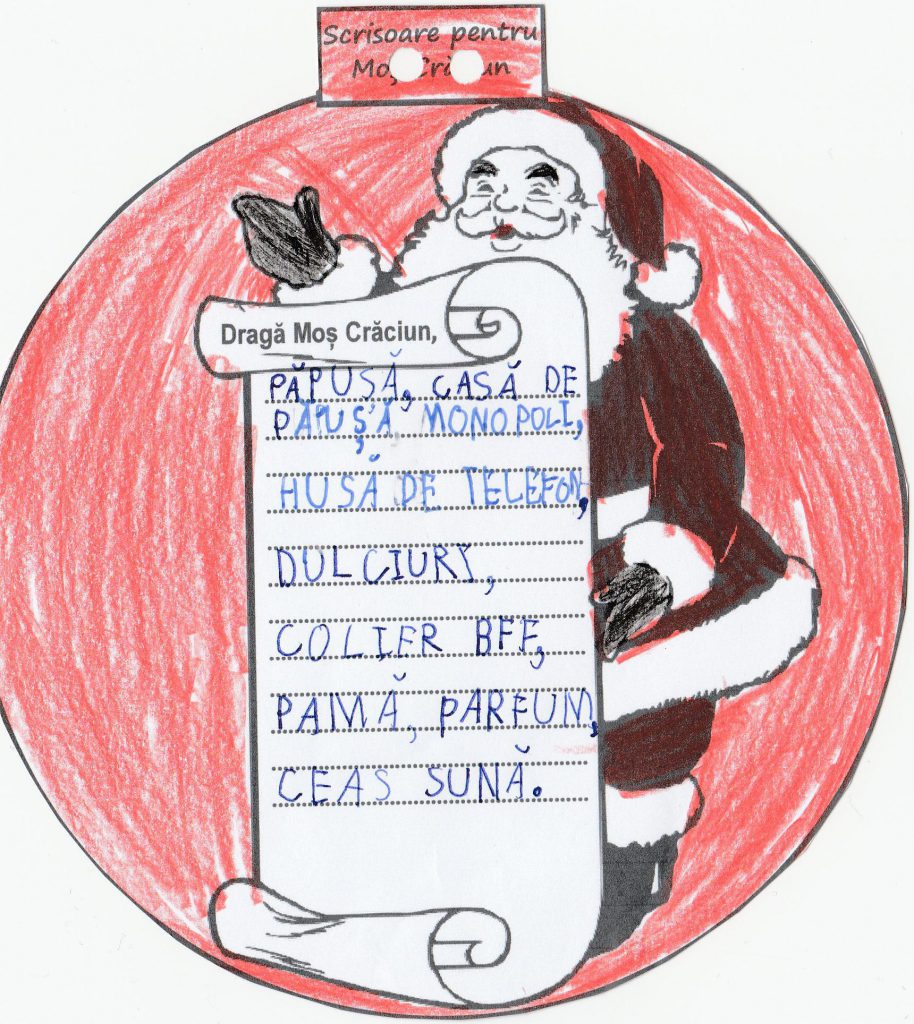 Scrisoare pentru
Moș Crăciun
Dragă Moș Crăciun,
PĂPUȘĂ, CASĂ DE
PĂPUȘĂ, MONOPOLI,
HUSĂ DE TELEFON,
DULCIURI,
COLIER BFF,
PAMĂ, PARFUM,
CEAS SUNĂ.